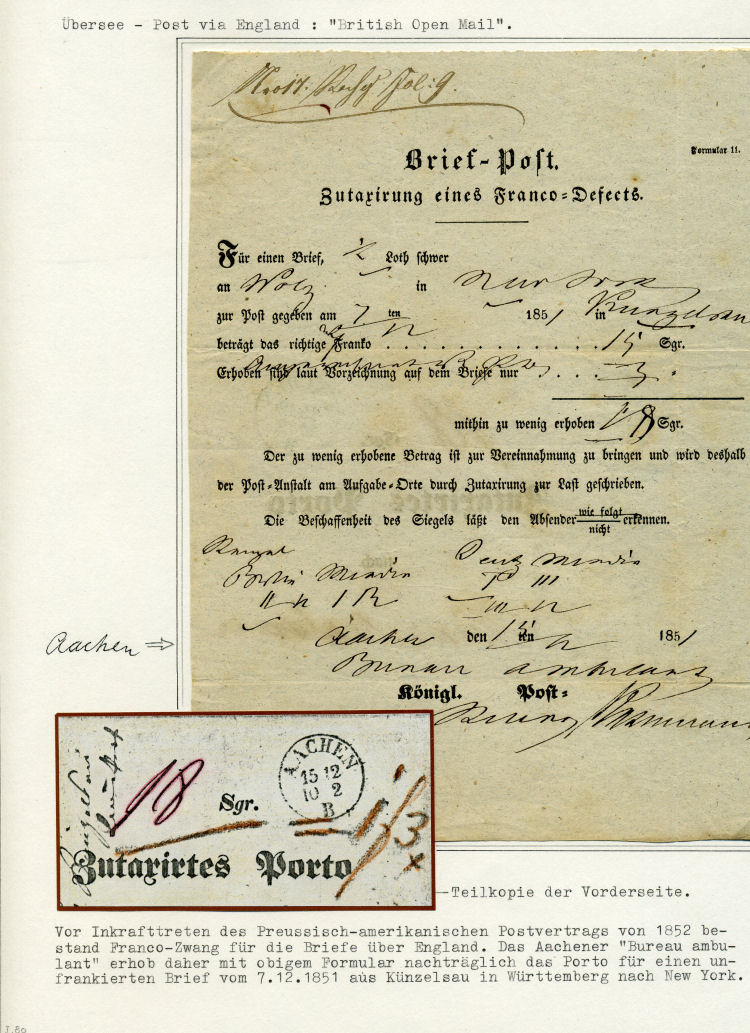 Übersee - Post via England : "British Open Mail".
Formular 11.
Brief-Post.
Zutaxirung eines Franco-Defects.
Für einen Brief, ½ Loth schwer
an in New York
zur Post gegeben am 7 ten 1851 in
beträgt das richtige Franko . . . . . . . . . . . . . 15 Sgr.
Erhoben sind laut Vorzeichnung auf dem Briefe nur . . . 3 "
mithin zu wenig erhoben 18 Sgr.
Der zu wenig erhobene Betrag ist zur Vereinnahmung zu bringen und wird deshalb
der Post-Anstalt am Aufgabe-Orte durch Zutaxirung zur Last geschrieben.
Die Beschaffenheit des Siegels läßt den Absender wie folgt / nicht erkennen.
Berlin Minden Deutz Minden
Aachen ⇒
Aachen den 15 ten 12 1851
Bureau ambulant
Königl. Post-
AACHEN
15 12
10 2
B
18 Sgr.
Zutaxirtes Porto
Teilkopie der Vorderseite.
Vor Inkrafttreten des Preussisch-amerikanischen Postvertrags von 1852 be-
stand Franco-Zwang für die Briefe über England. Das Aachener "Bureau ambu-
lant" erhob daher mit obigem Formular nachträglich das Porto für einen un-
frankierten Brief vom 7.12.1851 aus Künzelsau in Württemberg nach New York.